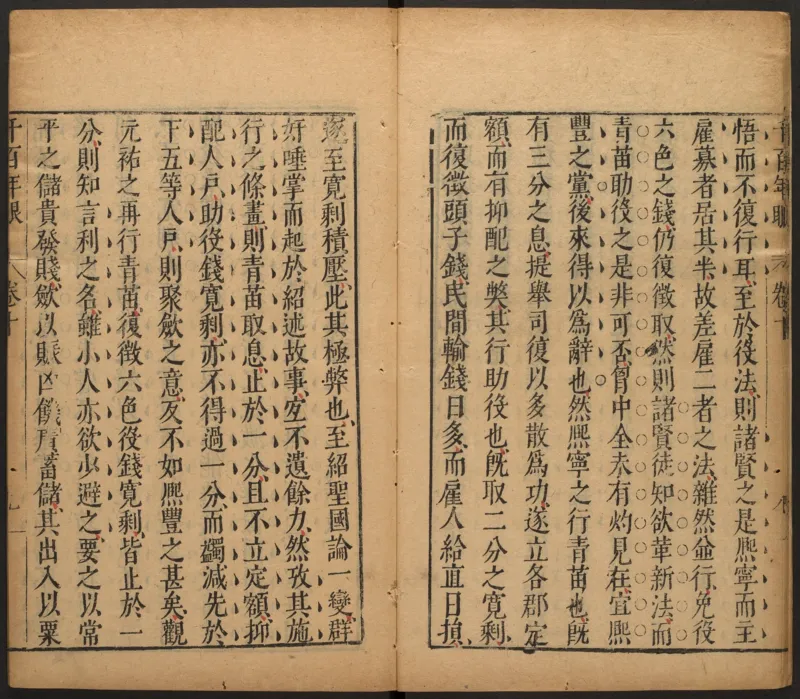 千百年眼 卷十
悟而不復行耳至於役法則諸賢之是熙寧而主
雇募者居其半故差雇二者之法雜然並行免役
六色之錢仍復徵取然則諸賢徒知欲革新法而
青苗助役之是非可否胷中全未有灼見在宜熙
豐之黨後來得以爲辭也然熙寧之行青苗也旣
有三分之息提舉司復以多散爲功遂立各郡定
額而有抑配之獘其行助役也旣取二分之寬剩
而復徵頭子錢民間輸錢日多而雇人給直日損
遂至寛剩積壓此其極弊也至紹聖國論一變群
奸唾掌而起於紹述故事宐不遺餘力然攷其施
行之條畫則青苗取息止於一分且不立定額抑
配人戸助役錢寬剩亦不得過一分而蠲減先於
下五等人戸則聚斂之意反不如熙豐之甚矣觀
元祐之再行青苗復徵六色役錢寬剩皆止於一
分則知言利之名雖小人亦欲少避之要之以常
平之儲貴發賤斂以賑凶饑廣蓄儲其出入以粟
千百年眼 卷十